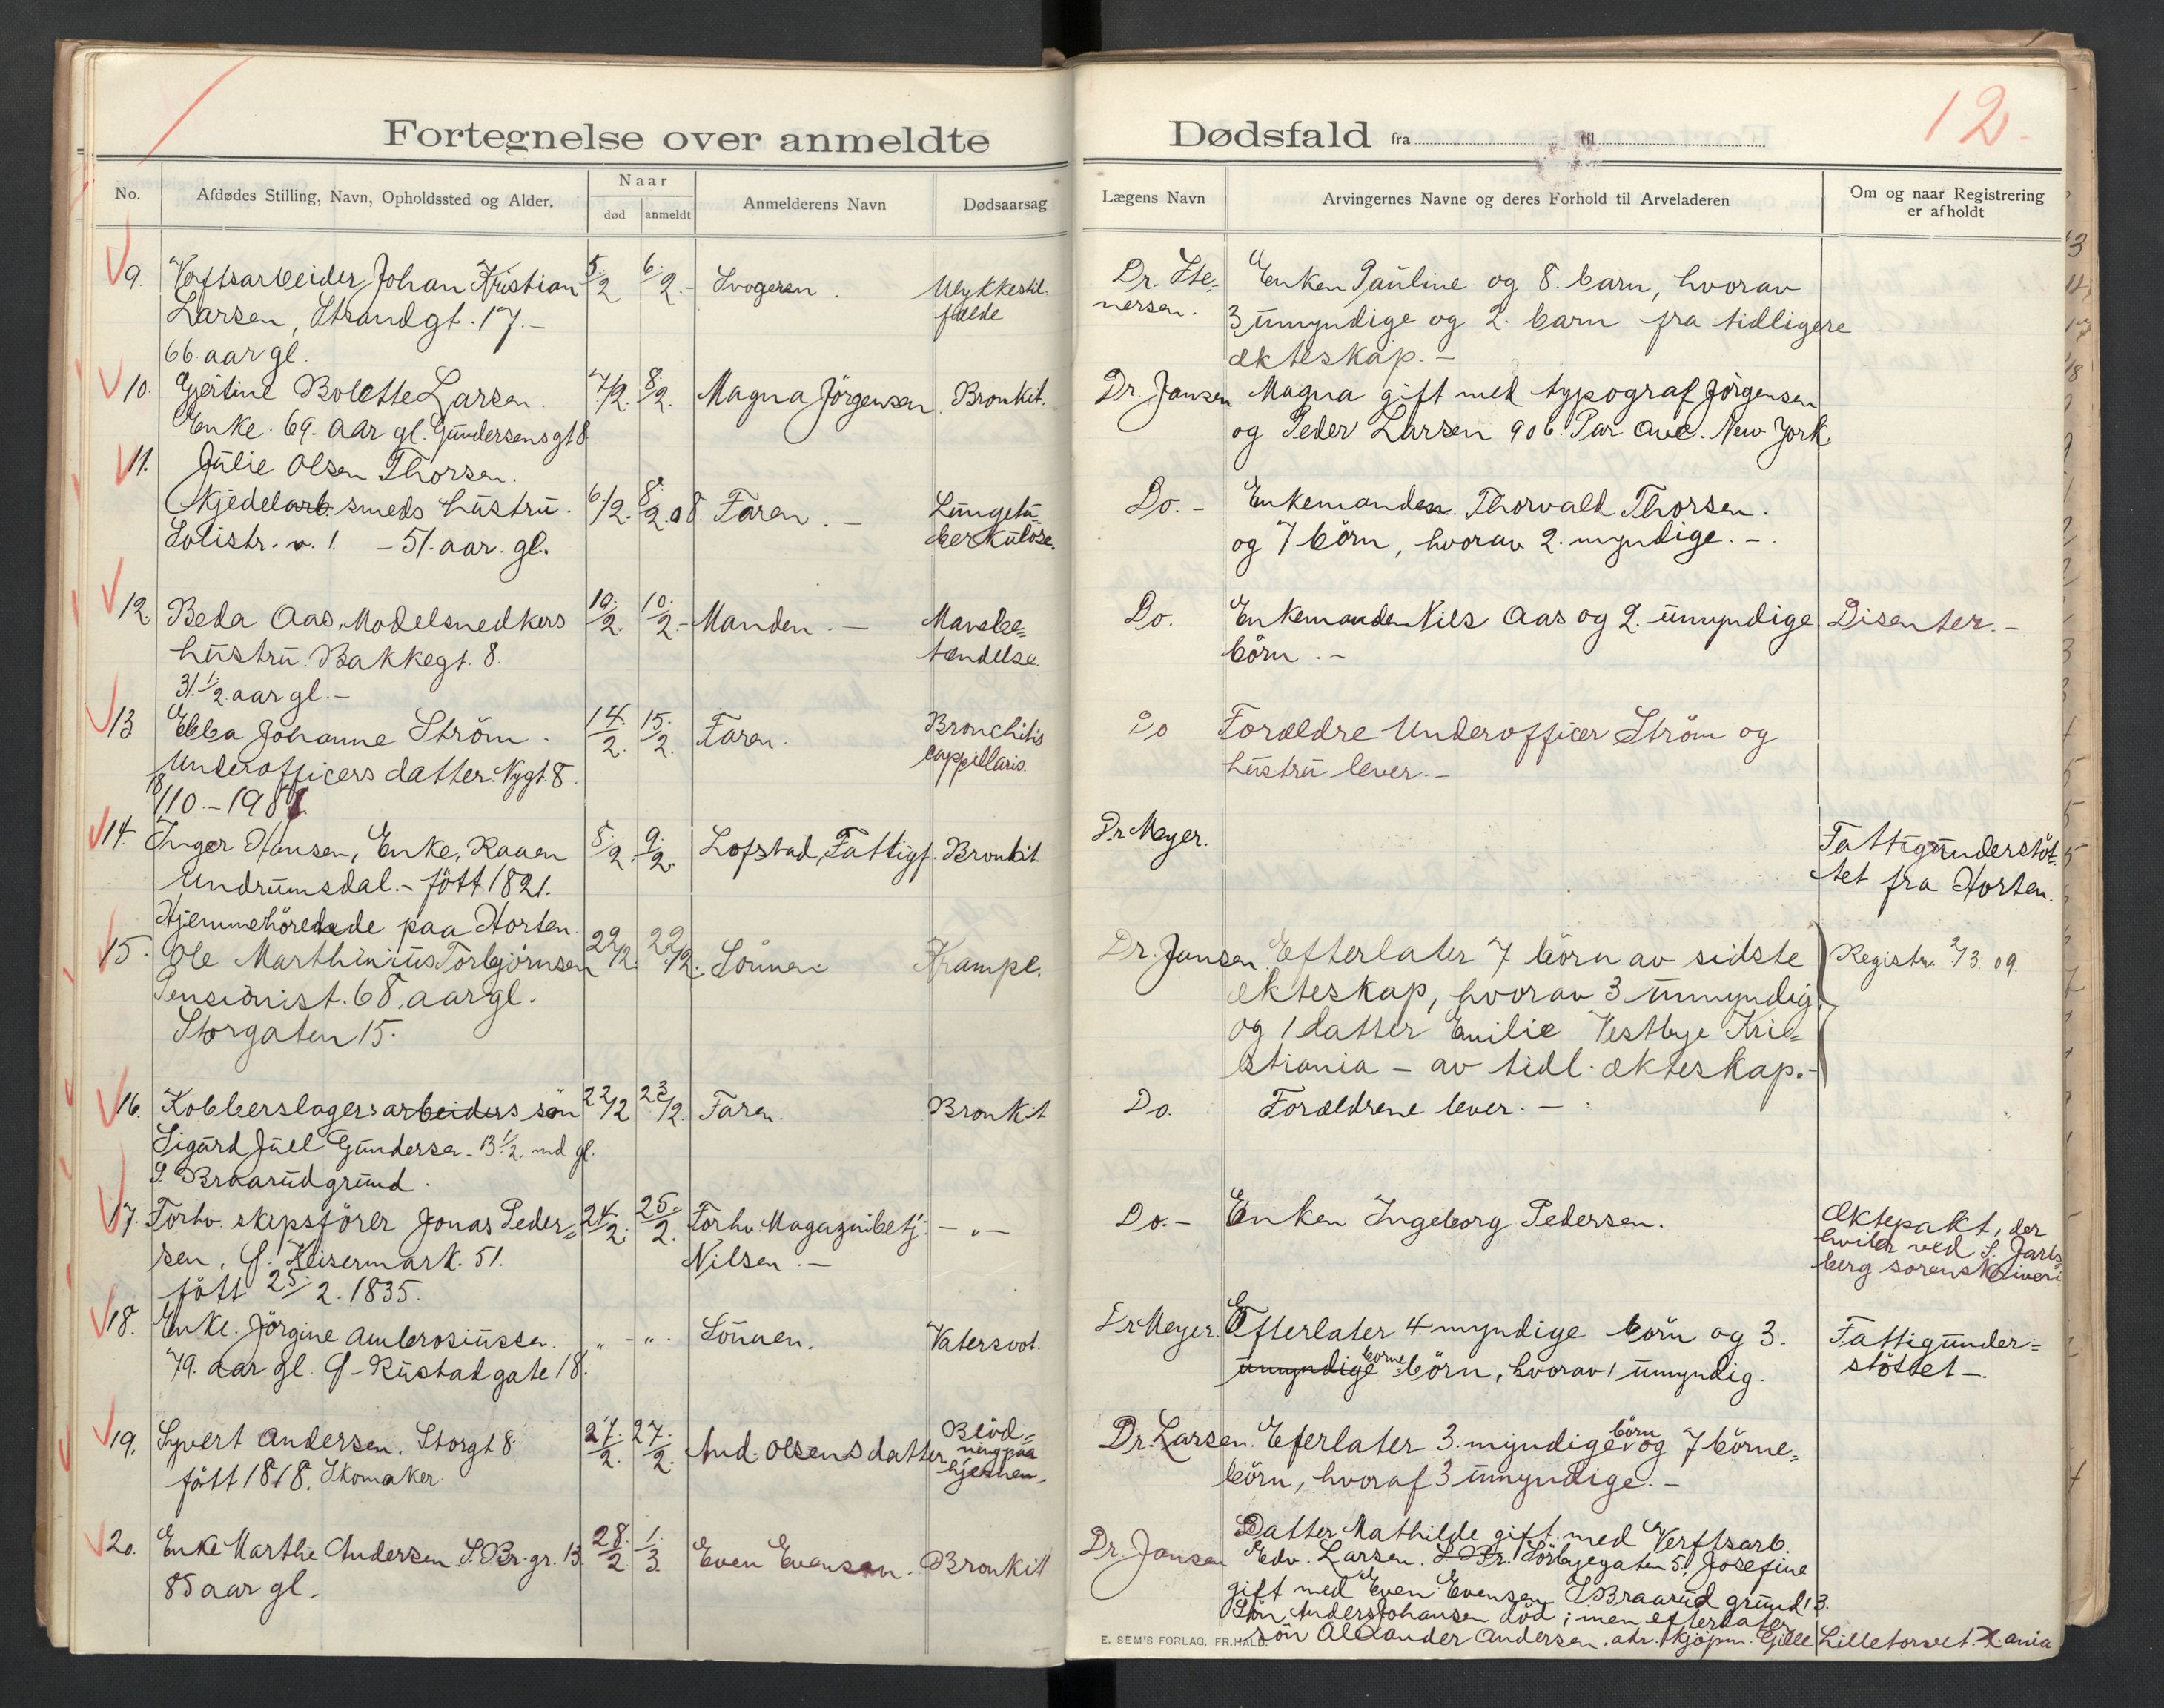 12.
Fortegnelse over anmeldte Dødsfald fra til
No. Afdødes Stilling, Navn, Opholdssted og Alder. Naar Anmelderens Navn Dødsaarsag Lægens Navn Arvingernes Navne og deres Forhold til Arveladeren Om og naar Registrering
død anmeldt er afholdt
9. Verftsarbeider Johan Kristian 5/2 6/2.- Svogeren. Ulykkestil- Dr. Ste- Enken Pauline og 8. barn, hvorav
Larsen, Strandgt. 17.- fælde nersen. 3 umyndige og 2. barn fra tidligere
66. aar gl. ekteskap.-
10. Gjertine Bolette Larsen. 7/2. 8/2. Magna Jörgensen. Bronkit. Dr. Jansen. Magna gift med typograf Jörgensen
Enke. 69. aar gl. Gundersensgt 8 og Peder Larsen 906. Par Ave. New York.
11. Julie Olsen Thorsen.
Kjedelarb. smeds hustru. 6/2. 8/2.08. Faren.- Lungetu- Do.- Enkemanden Thorvald Thorsen.
51. aar. gl. berkulose. og 7 börn, hvorav 2. myndige.-
12. Beda Aas, Modelsnedkers 10/2. 10/2.- Manden.- Mavebe- Do. Enkemanden Nils Aas og 2. umyndige Disenter.-
hustru. Bakkegt. 8. tændelse. börn.-
31.1/2. aar gl.-
13 Ebba Johanne Ström. 14/2. 15/2. Faren. Bronchitis Do Forældre Underofficer Ström og
Underofficers datter. Nygt. 8. cappillaris. hustru lever.-
18/10.-190
14. Inger Hansen, Enke, Raaen 5/2. 9/2. Lofstad, Fattigf. Bronkit. Dr. Meyer. Fattigunderstöt-
Undrumsdal.- fött 1821. tet fra Horten.
Hjemmehörende paa Horten.
15. Ole Marthinius Torbjörnsen 22/2. 22/2. Sönnen Krampe. Dr. Jansen. Efterlater 7 börn av sidste Registr. 2/3 09.
Pensionist. 68. aar gl. ekteskap, hvorav 3 umyndig.
Storgaten 15. og 1 datter Emilie Vestbye Kri-
stiania - av tidl. ekteskap.-
16. Kobberslagersarbeiders sön 22/2 23/2. Faren. Bronkit Do. Forældrene lever.-
Sigurd Juel Gundersen. 13 1/2. md gl.
S. Braarudgrund.
17. Forhv. skipsförer Jonas Peder- 24/2. 26/2. Forhv. Magazinbetj. -„- Do.- Enken Ingeborg Pedersen. Ektepakt, der
sen, G. Keisermark. 51. Nilsen.- hviler ved S. Jarls-
fött 25/2. 1835. berg sorenskriveri
18. Enke. Jörgine Ambrosiussen. „ - „. Sönnen. Vatersoot. Dr Meyer. Efterlater 4 myndige börn og 3. Fattigunder-
79. aar gl. G- Rustadgate 18. umyndige börne börn, hvorav 1 umyndig. stöttet-.
19. Syvert Andersen. Storgt 8 27/2. 27/2. And. Olsens datter. Blöd- Dr. Larsen. Eferlater 3. myndige börn og 7 börne-
fött 1818. Skomaker. ning paa hjernen. börn, hvoraf 3 umyndige.-
20. Enke Marthe Andersen S. Br.gr. 13. 28/2 1/3 Even Evensen. Bronkitt Dr. Jansen Datter Mathilde gift med Verftsarb.
85 aar gl. Edv. Larsen. S. Br. Sörbyegaten 5. Josefine
gift med Even Evensen S. Braarud grund 13.
Sön Anders Johansen död; men efterlater
sön Alexander Andersen. adr. kjöpm. Gille Lilletorvet. X.ania
E. SEM'S FORLAG, FR.HALD.